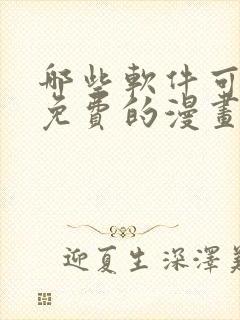 哪些軟件可
免費的漫畫
迎夏生深澤